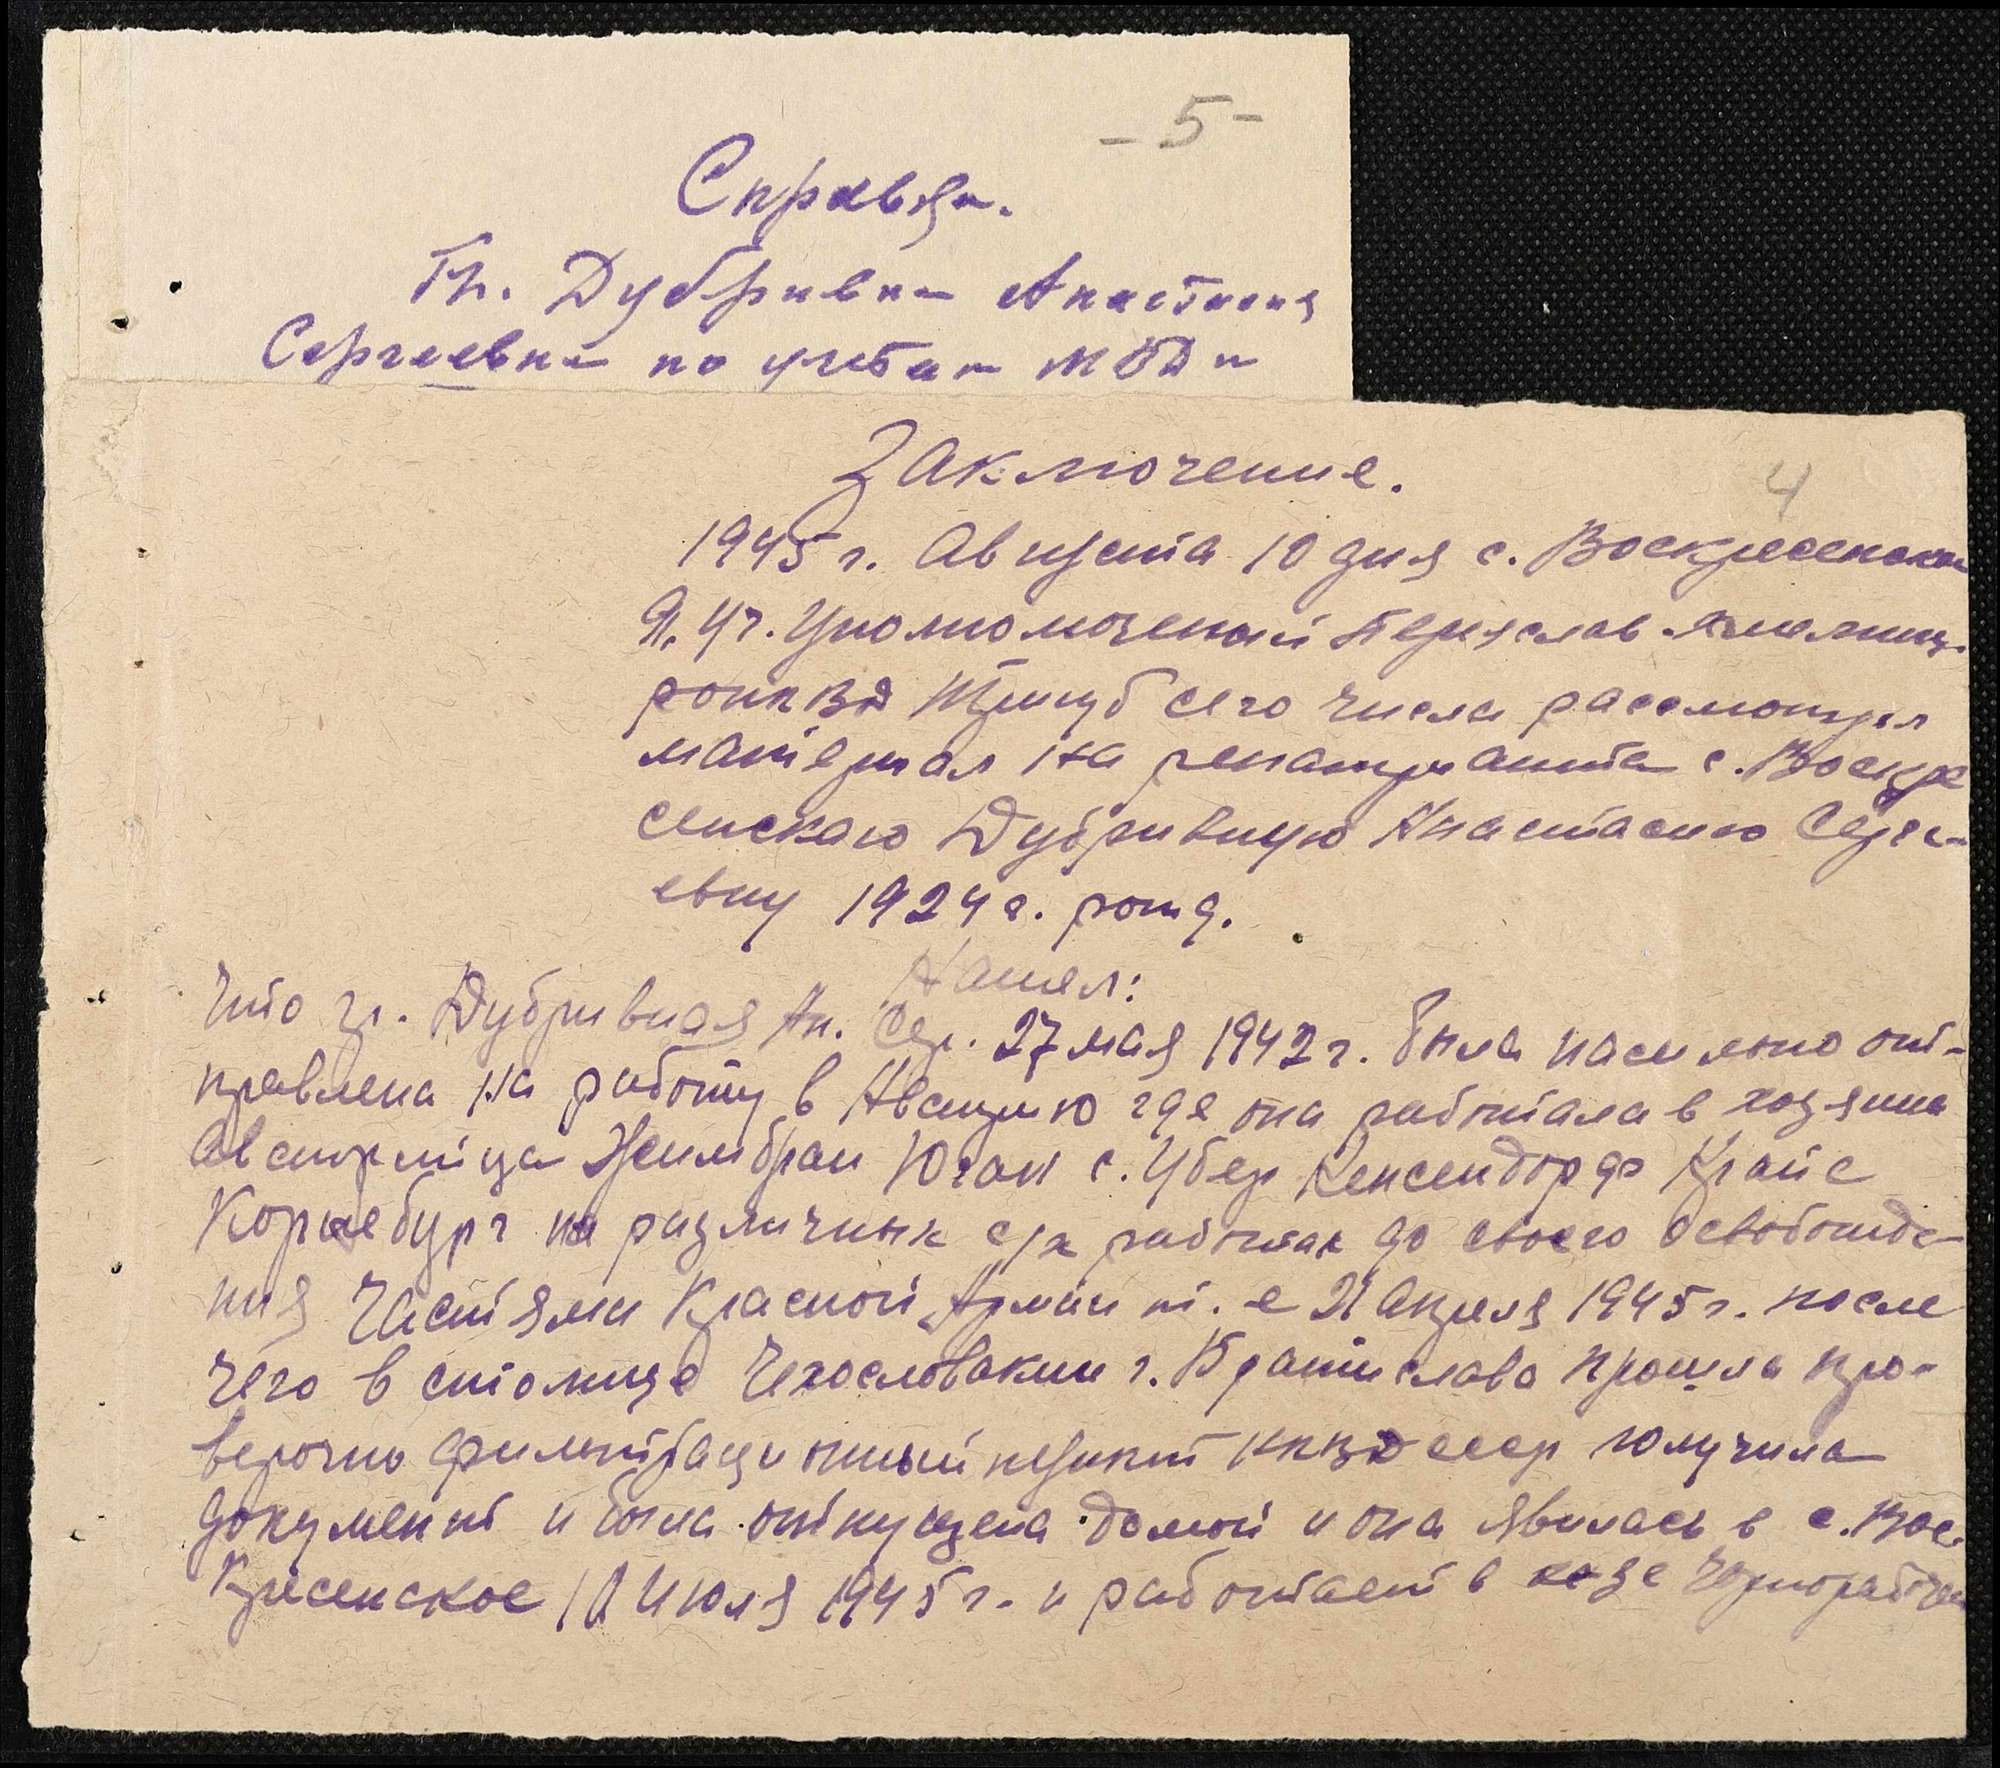 - 5 -
Справка.
Гр. Дубривна Анастасия
Сергеевна по учетам МВД и
Заключение.
4
1945 г. Августа 10 дня с. Воскресенское
Я, Уч. Уполномоченый Переяслав-Хмельниц.
РОНКВД сего числа рассмотрел
материал на репатрианта с. Воскре
сенского Дубривную Анастасию Серге-
евну 1924 г. рожд.
Нашел:
Что гр. Дубривная Ан. Сер. 27 мая 1942 г. была насильно от-
правлена на работу в Австрию где она работала в хозяина
австрийца Юган с. Убер Кенсендорф Крайс
Корнебург на различных с/х работах до своего освобожде-
ния Частями Красной Армии т. е 21 Апреля 1945 г. после
чего в столице Чехословакии г. Братислава прошла про-
верочно фильтрационный пункт НКВД СССР получила
документ и была отпущена домой и она явилась в с. Вос-
кресенское 10 Июля 1945 г. и работает в